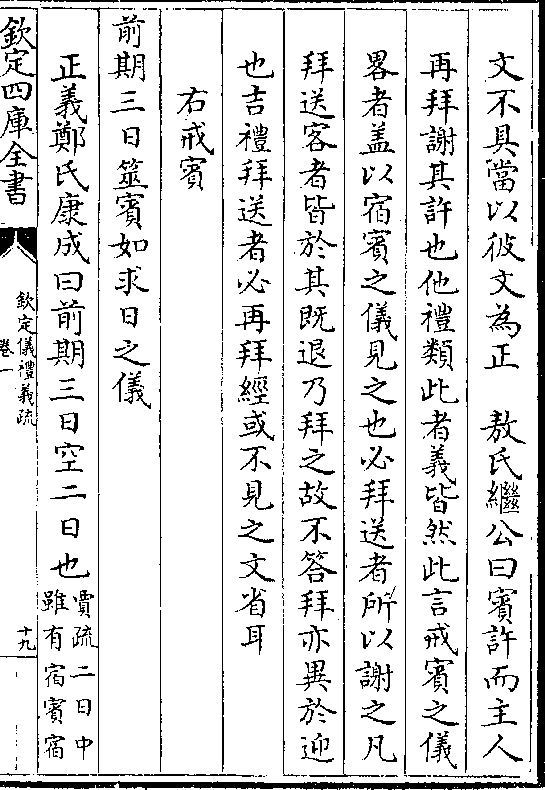 文不具當以彼文為正　敖氏繼公曰賓許而主人
再拜謝其許也他禮類此者義皆然此言戒賓之儀
畧者盖以宿賓之儀見之也必拜送者所以謝之凡
拜送客者皆於其既退乃拜之故不答拜亦異於迎
也吉禮拜送者必再拜經或不見之文省耳
右戒賓
前期三日筮賓如求日之儀
正義鄭氏康成曰前期三日空二日也
賈疏二日中
雖有宿賓宿
欽定四庫全書
欽定儀禮義疏
卷一
十九